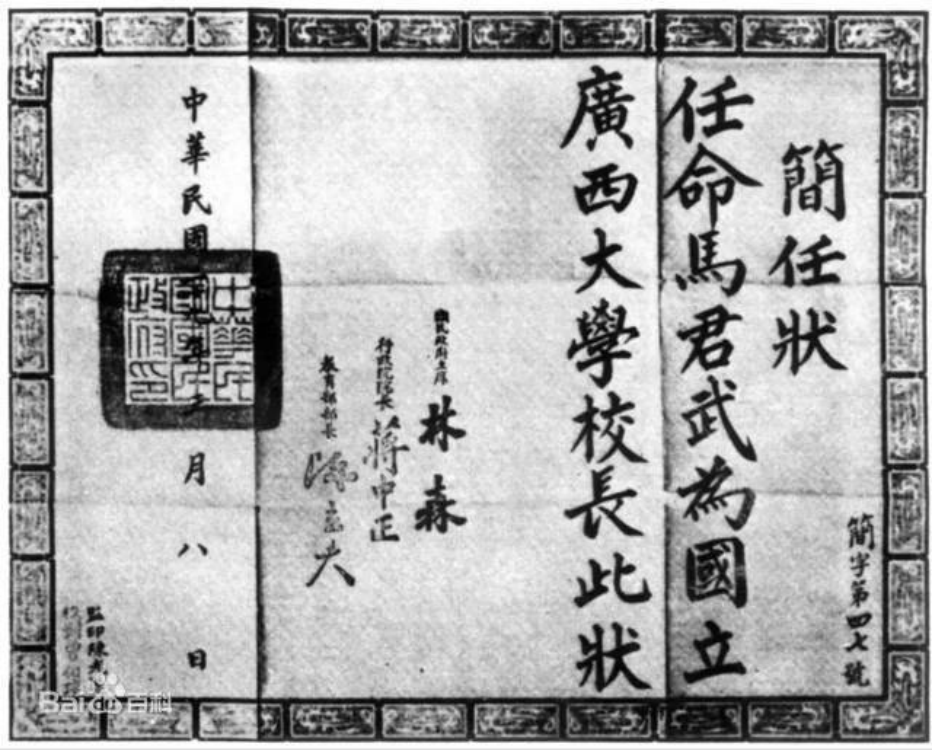 簡任狀
簡字第四七號
任命馬君武為國立
廣西大學校長此狀
國民政府主席 林森
行政院院長 蔣中正
教育部部長 陳立夫
中華民國 年 月八日
監印陳
Baidu百科